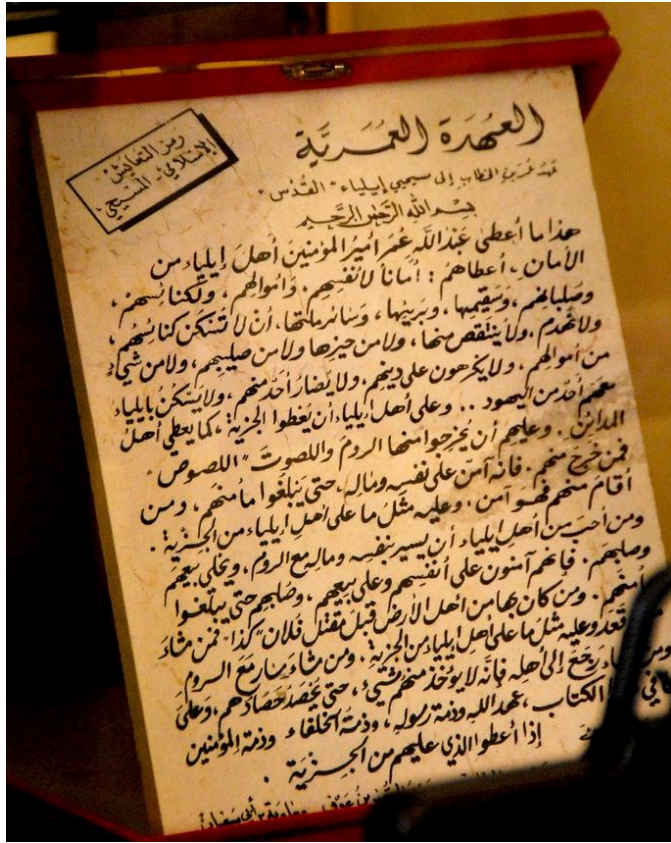 العهدة العمرية
رمز التعايش
الإسلامي - المسيحي
عهد عمر بن الخطاب إلى مسيحيي إيلياء "القدس"
بسم الله الرحمن الرحيم
هذا ما أعطى عبد الله عمر أمير المؤمنين أهل إيلياء من
الأمان، أعطاهم: أماناً لأنفسهم. وأموالهم، ولكنائسهم،
وصلبانهم، وسقيمها، وبريئها، وسائر ملتها، أن لا تسكن كنائسهم،
ولا تهدم. ولا ينتقص منها، ولا من حيزها ولا من صليبهم، ولا من شيء
من أموالهم، ولا يكرهون على دينهم، ولا يضار أحد منهم، ولا يسكن بإيلياء
معهم أحد من اليهود.. وعلى أهل إيلياء أن يعطوا الجزية، كما يعطي أهل
المدائن. وعليهم أن يخرجوا منها الروم واللصوت "اللصوص"
فمن خرج منهم. فإنه آمن على نفسه وماله، حتى يبلغوا مأمنهم، ومن
أقام منهم فهو آمن. وعليه مثل ما على أهل إيلياء من الجزية.
ومن أحب من أهل إيلياء أن يسير بنفسه وماله مع الروم، ويخلي بيعهم
وصلبهم. فإنهم آمنون على أنفسهم وعلى بيعهم، وصلبهم حتى يبلغوا
مأمنهم. ومن كان بها من أهل الأرض قبل مقتل فلان "كذا" فمن شاء
قعد وعليه مثل ما على أهل إيلياء من الجزية. ومن شاء سار مع الروم
ومن شاء رجع إلى أهله فإنه لا يؤخذ منهم شيء، حتى يحصد حصادهم، وعلى
في الكتاب، عهد الله وذمة رسوله، وذمة الخلفاء وذمة المؤمنين
إذا أعطوا الذي عليهم من الجزية.
بن عوف ومعاوية بن أبي سفيان